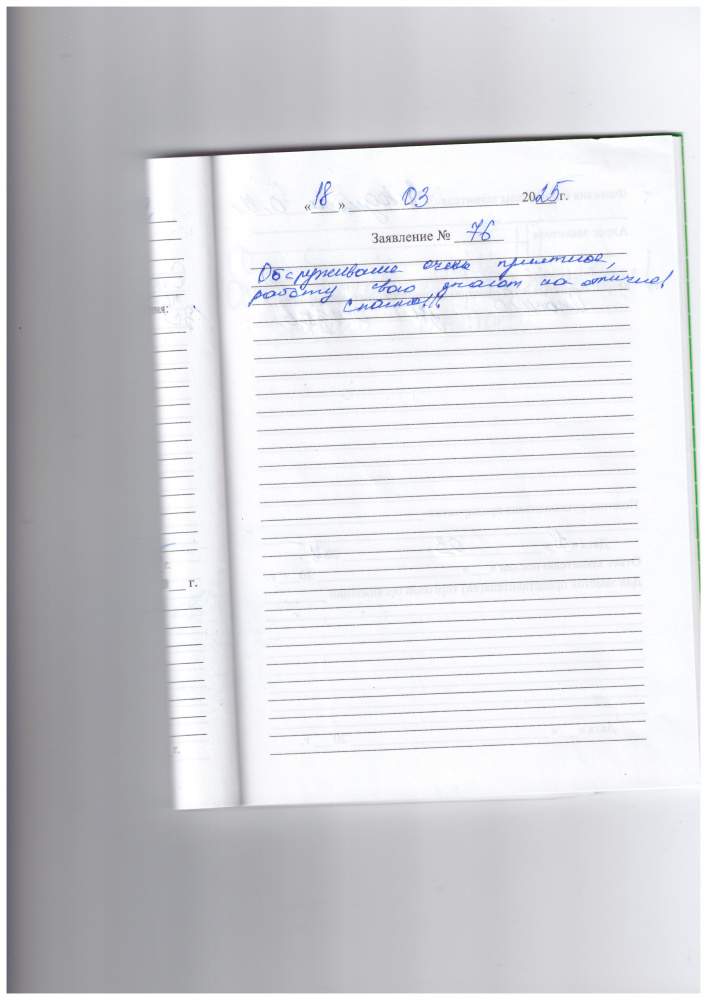 «18» 03 2025 г.
Заявление № 76
Обслуживание очень приятное,
работу свою делают на отлично!
Спасибо!!!
ния:
г.
г.